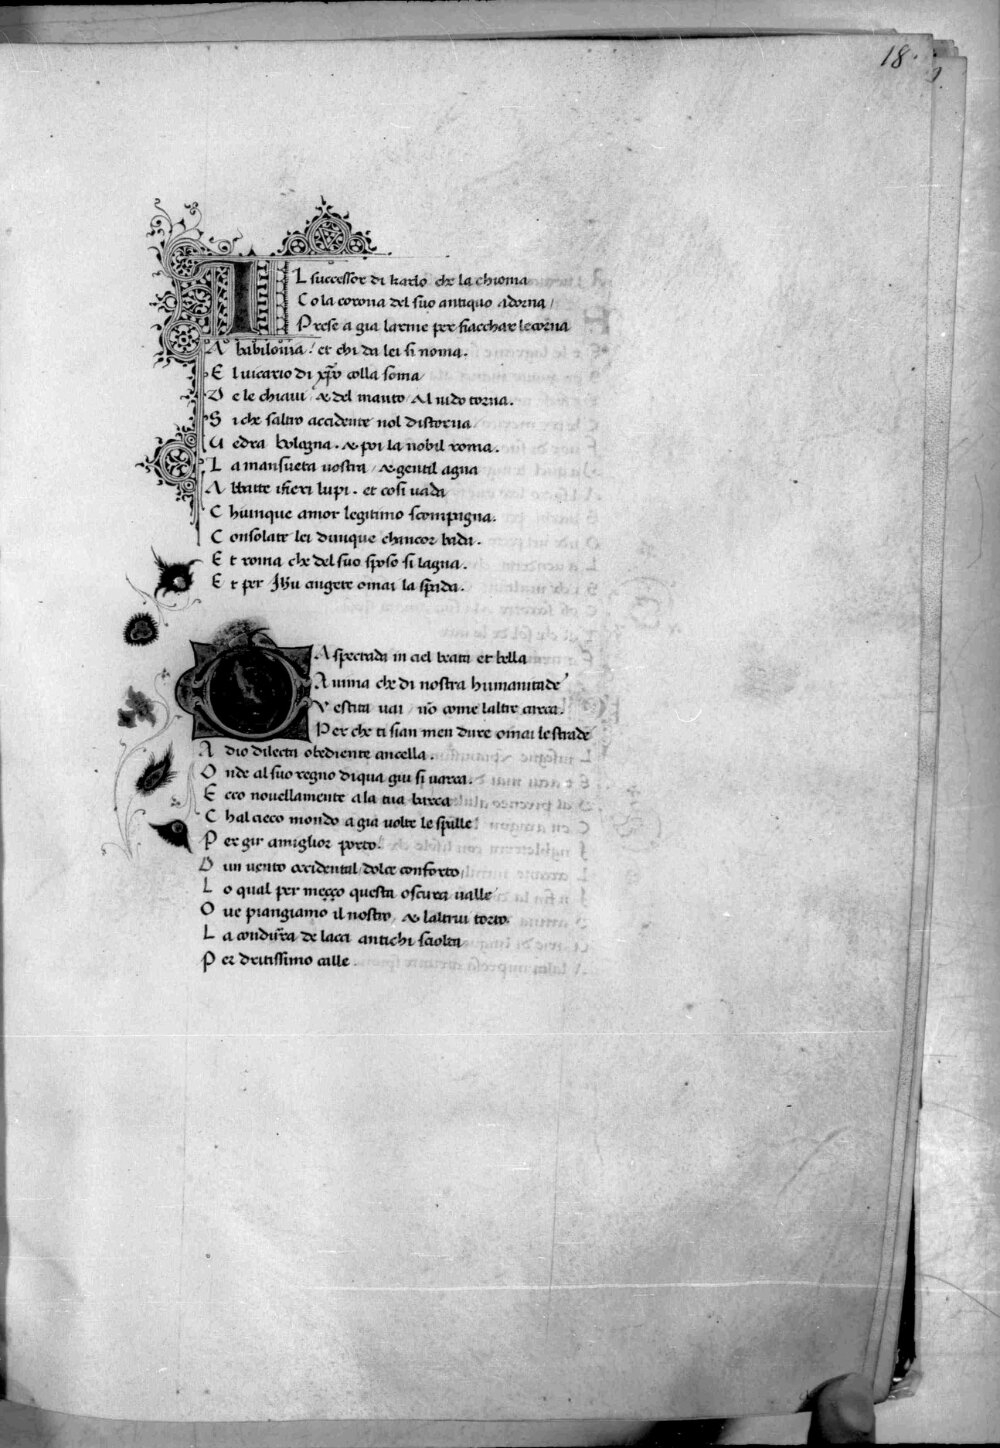 18.
IL successor di karlo che la chioma
Co la corona del suo antiquo adorna /
Prese a gia larme per fiacchar le corna
A babilonia / et chi da lei si noma.
El uicario di xp̄o colla soma
De le chiaui / & del manto / Al nido torna.
Si che saltro accidente nol distorna
Uedra bologna. & poi la nobil roma.
La mansueta uostra / & gentil agna
Abbatte i fieri lupi. et cosi uada
Chiunque amor legitimo scompigna.
Consolate lei dunque chancor bada.
Et roma che del suo sposo si lagna.
Et per Jħu cingete omai la spada.
O Aspectada in ciel beata et bella
Anima che di nostra humanitade
Vestita uai / nō come laltre carca.
Perche ti sian men dure omai le strade
A dio dilecta obediente ancella.
Onde al suo regno di qua giu si uarca.
Ecco nouellamente a la tua barca
Chal cieco mondo a gia uolte le spalle
Per gir a miglior porto.
Dun uento occidental / dolce conforto /
Lo qual per meçço questa oscura ualle
Oue piangiamo il nostro / & laltrui torto.
La condurra de lacci antichi sciolta
Per dritissimo calle.